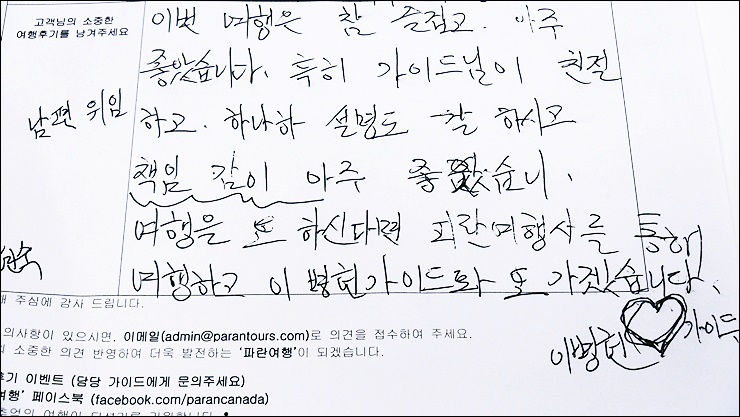 고객님의 소중한
여행후기를 남겨주세요
이번 여행은 참 즐겁고. 아주
좋았습니다. 특히 가이드님이 친절
남편 위임
하고. 하나하 설명도 잘 하시고
책임 감이 아주 좋았습니.
여행을 또 하신다면 파란여행사를 통해
여행하고 이병헌가이드와 또 가겟습니다.
이병헌 가이드
주심에 감사 드립니다.
의사항이 있으시면, 이메일(admin@parantours.com)로 의견을 접수하여 주세요.
소중한 의견 반영하여 더욱 발전하는 '파란여행'이 되겠습니다.
후기 이벤트 (담당 가이드에게 문의주세요)
여행' 페이스북 (facebook.com/parancanada)